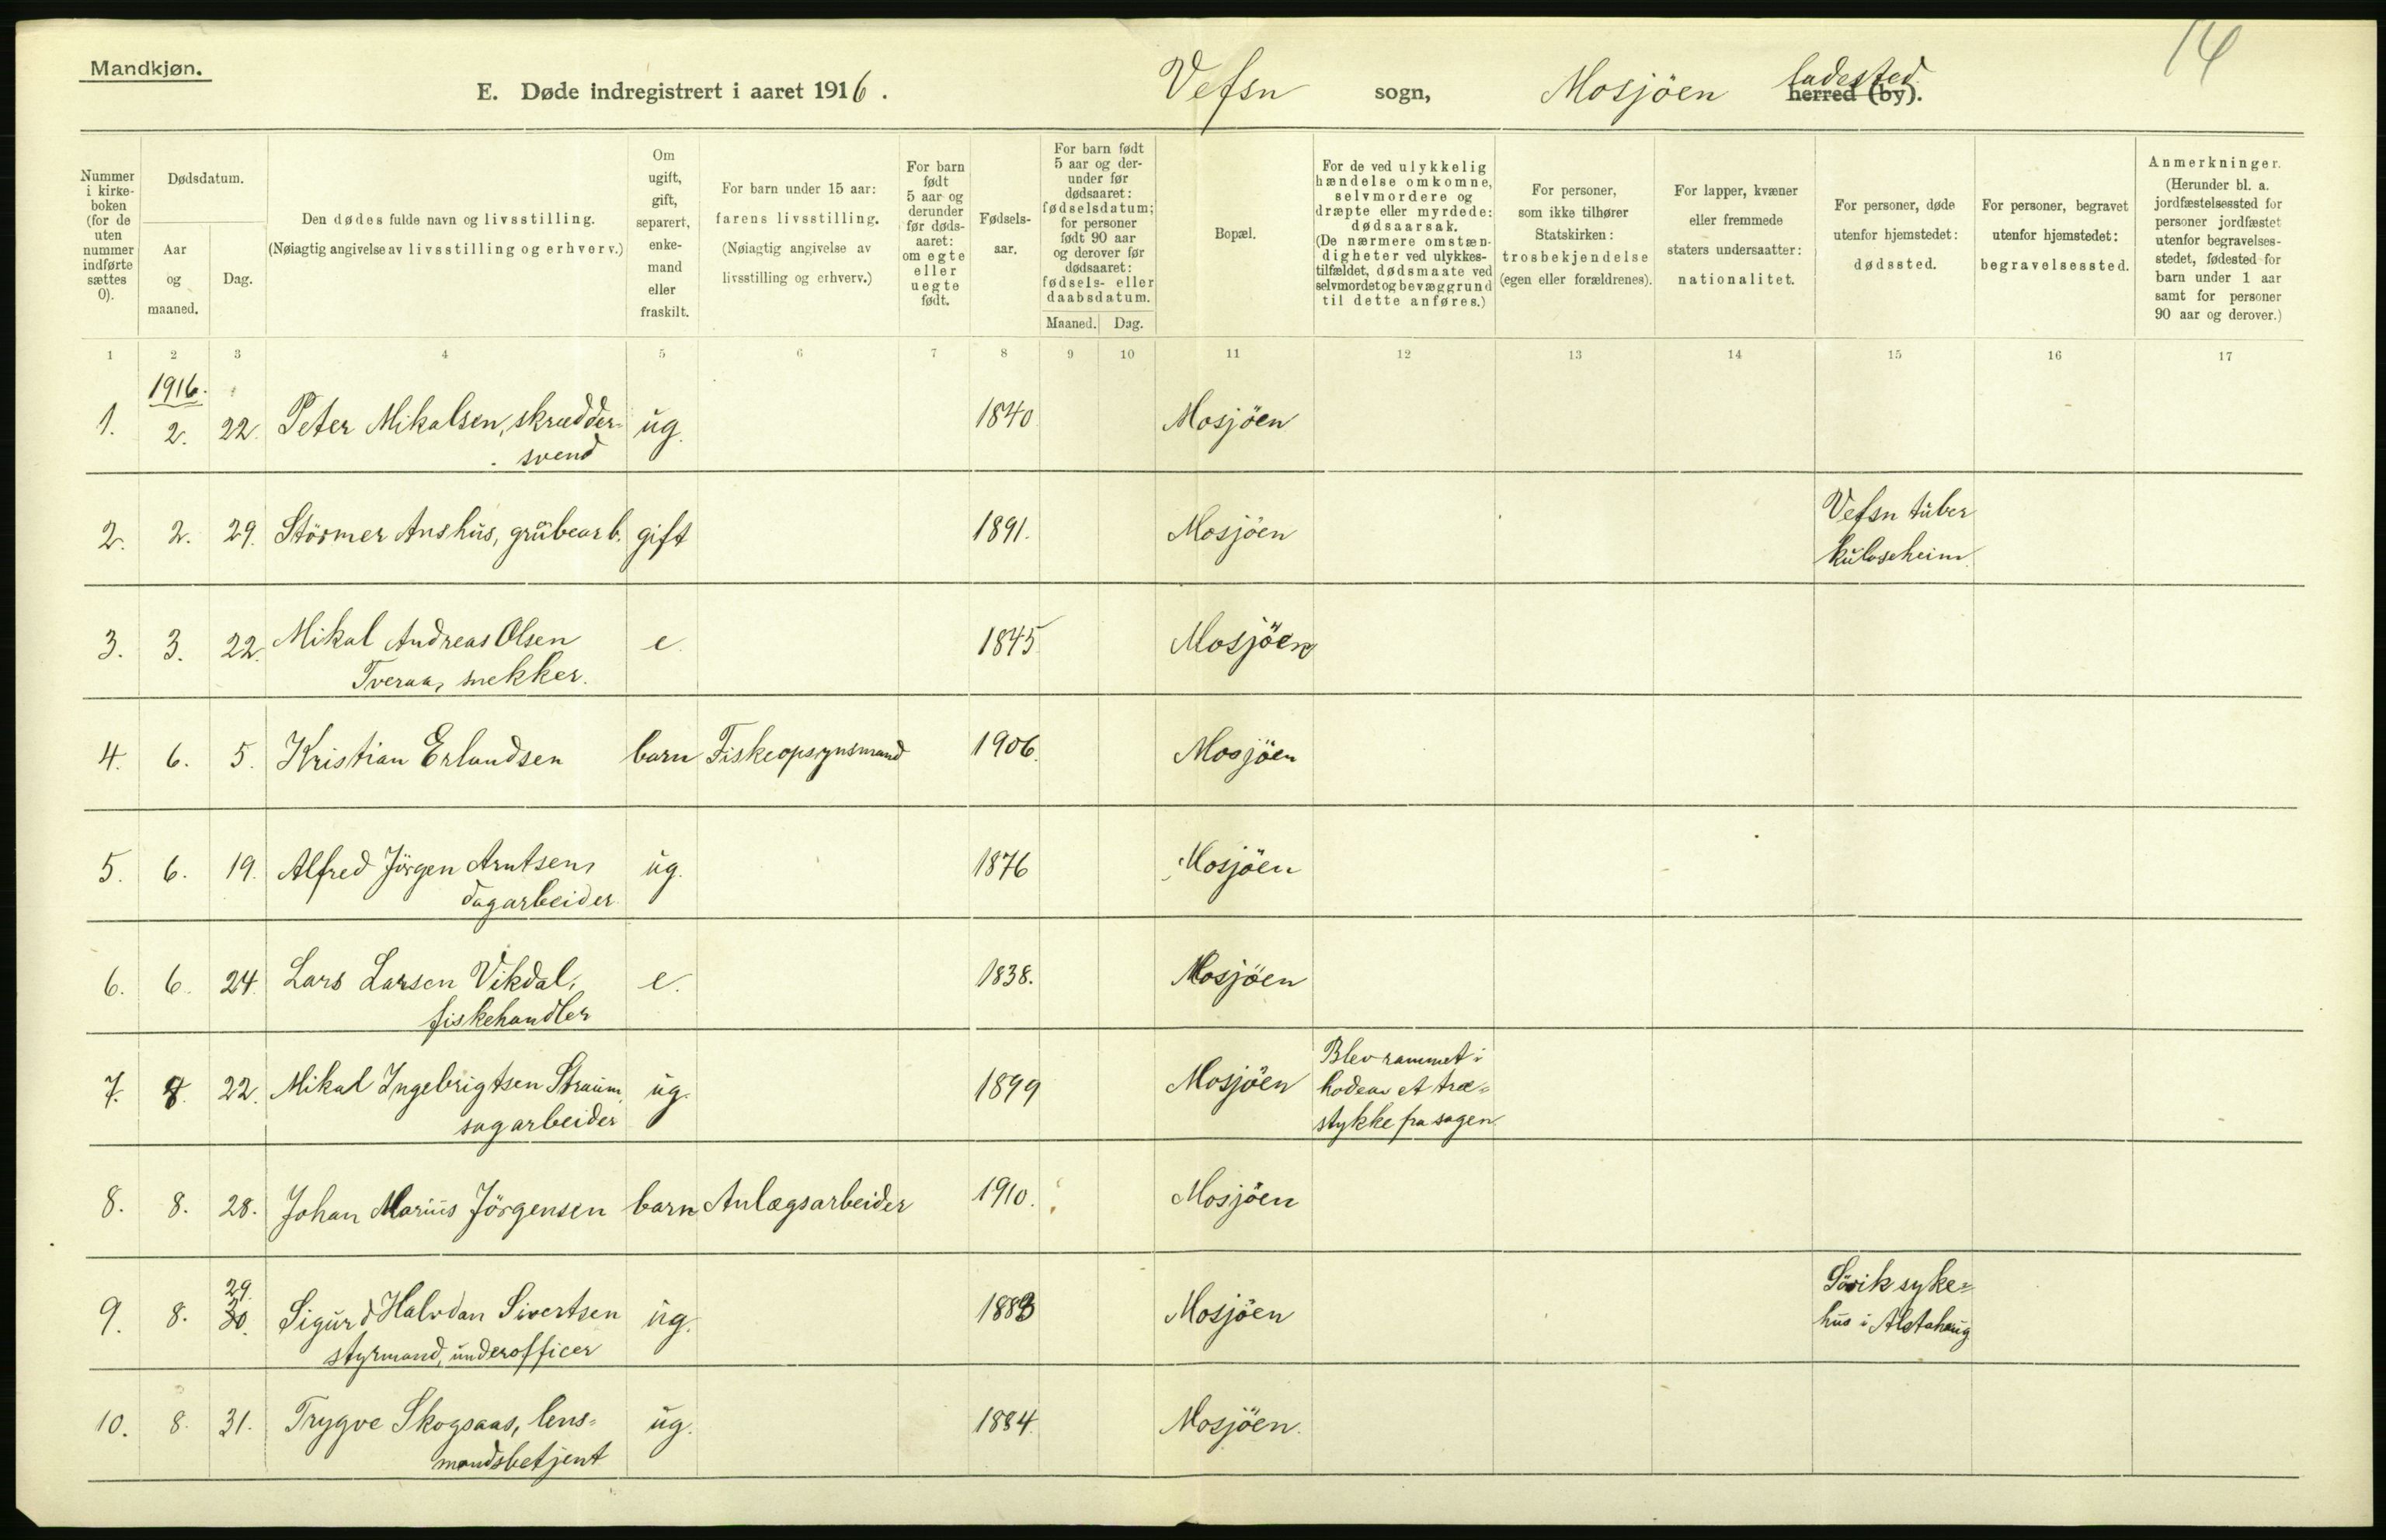 14
Mandkjøn.
E. Døde indregistrert i aaret 1916. Vefsn sogn, Mosjöen ladested
herred (by).
Nummer
i kirke-
boken
(for de
uten
nummer
indførte
sættes
0).
Dødsdatum.
Aar
og
maaned.
Dag.
Den dødes fulde navn og livsstilling.
(Nøiagtig angivelse av livsstilling og erhverv.)
Om
ugift,
gift,
separert,
enke-
mand
eller
fraskilt.
For barn under 15 aar:
farens livsstilling.
(Nøiagtig angivelse av
livsstilling og erhverv.)
For barn
født
5 aar og
derunder
før døds-
aaret:
om egte
eller
uegte
født.
Fødsels-
aar.
For barn født
5 aar og der-
under før
dødsaaret:
fødselsdatum;
for personer
født 90 aar
og derover før
dødsaaret:
fødsels- eller
daabsdatum.
Maaned. Dag.
Bopæl.
For de ved ulykkelig
hændelse omkomne,
selvmordere og
dræpte eller myrdede:
dødsaarsak.
(De nærmere omstæn-
digheter ved ulykkes-
tilfældet, dødsmaate ved
selvmordet og bevæggrund
til dette anføres.)
For personer,
som ikke tilhører
Statskirken:
trosbekjendelse
(egen eller forældrenes).
For lapper, kvæner
eller fremmede
staters undersaatter:
nationalitet.
For personer, døde
utenfor hjemstedet:
dødssted.
For personer, begravet
utenfor hjemstedet:
begravelsessted.
Anmerkninger.
(Herunder bl. a.
jordfæstelsessted for
personer jordfæstet
utenfor begravelses-
stedet, fødested for
barn under 1 aar
samt for personer
90 aar og derover.)
1 2 3 4 5 6 7 8 9 10 11 12 13 14 15 16 17
1916.
1. 2. 22. Peter Mikalsen, skrædder- ug. 1840 Mosjöen
svend
2. 2. 29. Störmer Aushus, grubearb. gift 1891. Mosjöen Vefsn tuber
kuloseheim.
3. 3. 22. Mikal Andreas Olsen e. 1845 Mosjöen
Tveraa, snekker.
4. 6. 5. Kristian Erlandsen barn Fiskeopsynsmand 1906. Mosjöen
5. 6. 19. Alfred Jörgen Arntsen, ug. 1876 Mosjöen
dagarbeider.
6. 6. 24. Lars Larsen Vikdal, e. 1838. Mosjöen
fiskehandler
7. 22. Mikal Ingebrigtsen Straum, ug. 1899 Mosjöen Blev rammet i
sagarbeider hodeav et træ-
stykke fra sagen.
8. 8. 28. Johan Marius Jörgensen barn Anlægsarbeider 1910. Mosjöen
29.
9. 8. 30. Sigurd Halvdan Sivertsen ug. 1883 Mosjöen Sövik syke-
styrmand, underofficer hus i Alstahaug
10. 8. 31. Trygve Skogsaas, lens- ug. 1884. Mosjöen.
mandsbetjent